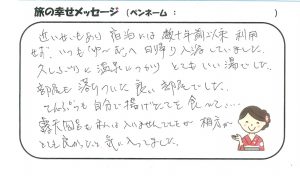 旅の幸せメッセージ（ペンネーム：　　　）
近いせいもあり 宿泊には 数十年前以来 利用
せず、いつも「ゆ〜む」へ日帰り入浴していました。
久しぶりに 温泉につかり とてもいい湯でした。
部屋も 落ちついた 良い 部屋でした。
てんぷらも 自分で 揚げたてを 食べて…
露天風呂も 私は入いませんでしたが 相方が
とても 良かったと 気に入ってました。